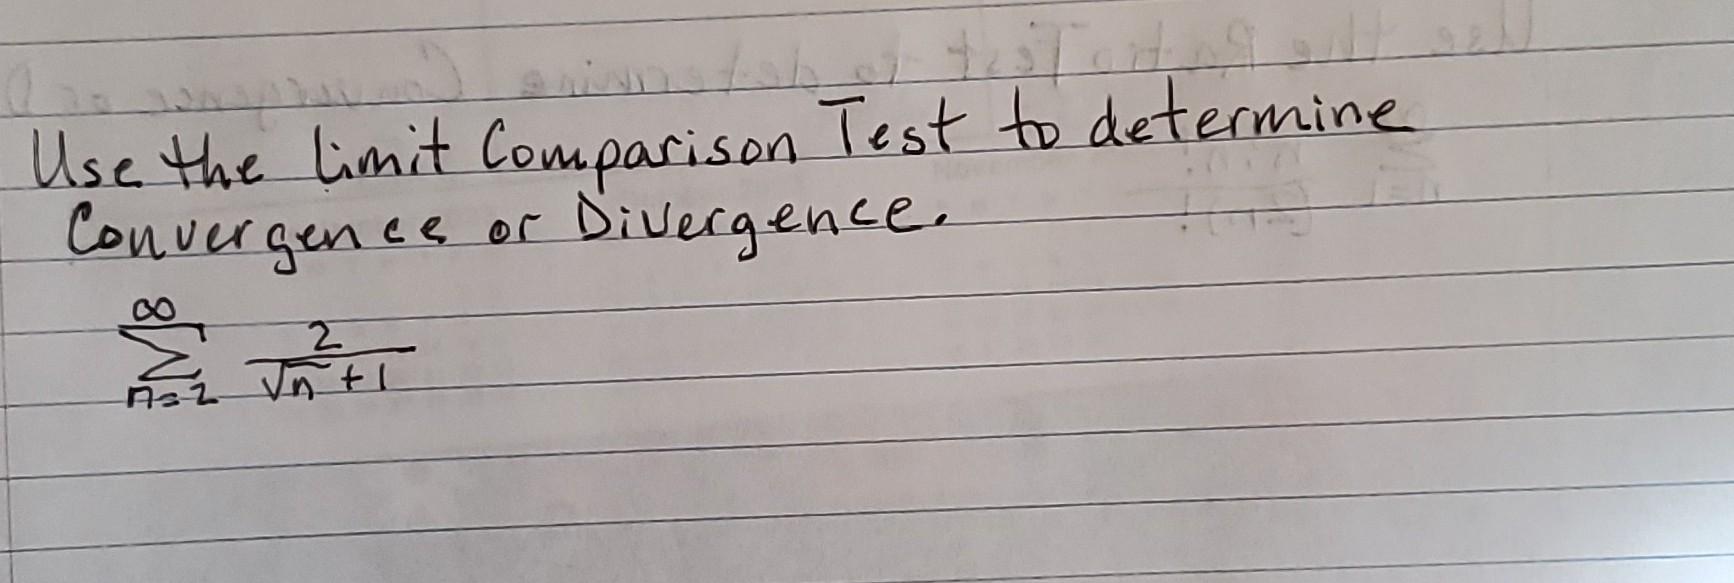 Use the limit Comparison Test to determine
Convergence or Divergence.
∞
∑ 2/(√n + 1)
n=2